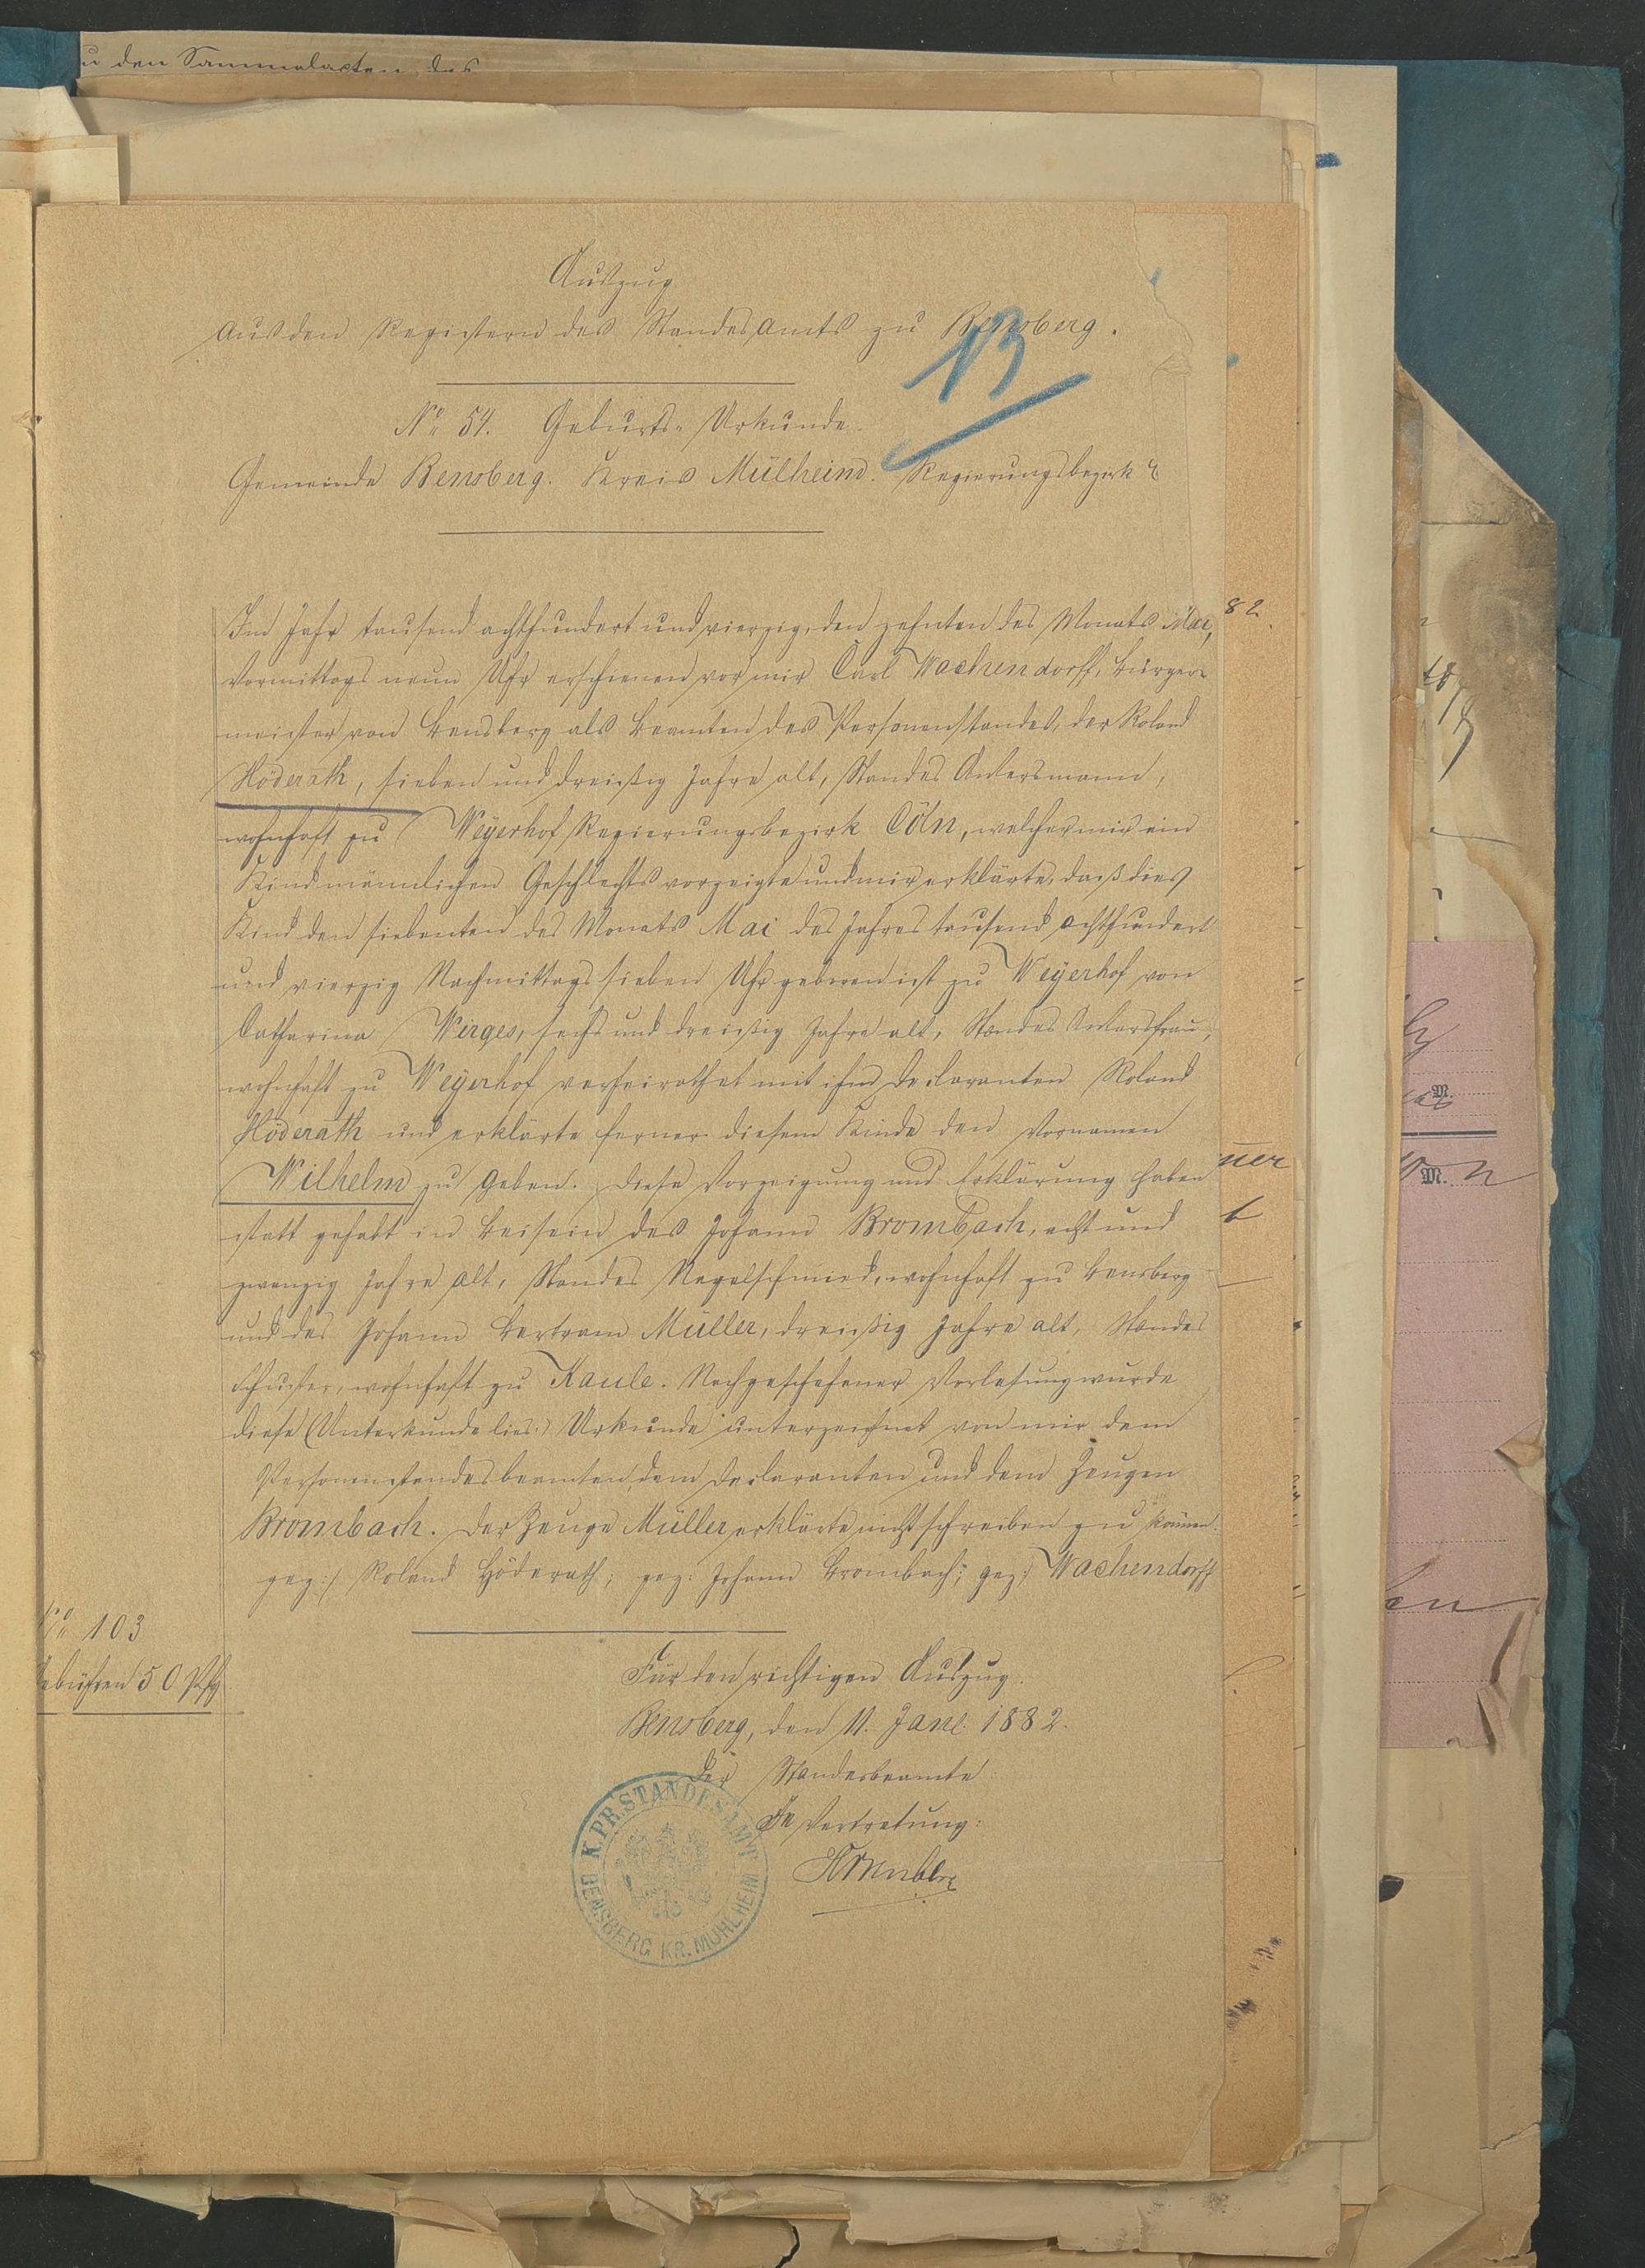 u den Sammelacten des
Auszug
aus den Registern des Standesamts zu Bensberg.
13
No 54. Geburts-Urkunde.
Gemeinde Bensberg. Kreis Mülheim. Regierungsbezirk C
Im Jahr tausend achthundert und vierzig, den zehnten des Monats Mai,
Vormittags neun Uhr erschienen vor mir Carl Wachendorff, Bürger-
meister von Bensberg als Beamten des Personenstandes, der Roland
Höderath, sieben und dreißig Jahre alt, Standes Ackersmann,
wohnhaft zu Weyerhof Regierungsbezirk Cöln, welcher mir ein
Kind männlichen Geschlechts vorzeigte und mir erklärte, daß dies
Kind den siebenten des Monats Mai des Jahres tausend achthundert
und vierzig Nachmittags sieben Uhr geboren ist zu Weyerhof von
Catharina Wirges, sechs und dreißig Jahre alt, Standes Ackersfrau,
wohnhaft zu Weyerhof verheirathet mit ihm Declaranten Roland
Höderath und erklärte ferner diesem Kinde den Vornamen
Wilhelm zu geben. Diese Vorzeigung und Erklärung haben
statt gehabt in Beisein des Johann Brombach, acht und
zwanzig Jahre alt, Standes Nagelschmied, wohnhaft zu Bensberg
und des Johann Bertram Müller, dreißig Jahre alt, Standes
Schuster, wohnhaft zu Kaule. Nachgeschehener Vorlesung wurde
diese (Unterkunde lies:) Urkunde unterzeichnet von mir dem
Personenstandesbeamten, dem Declaranten und dem Zeugen
Brombach. Der Zeuge Müller erklärte nicht schreiben zu können.
gez:/ Roland Höderath; gez: Johann Brombach; gez: Wachendorff
No 103
Gebühren 50 Pfg
Für den richtigen Auszug.
Bensberg, den 11. Janr. 1882.
Der Standesbeamte:
In Vertretung:
K.PR.STANDESAMT
BENSBERG KR. MÜHLHEIM
82.
ner
M.
M.